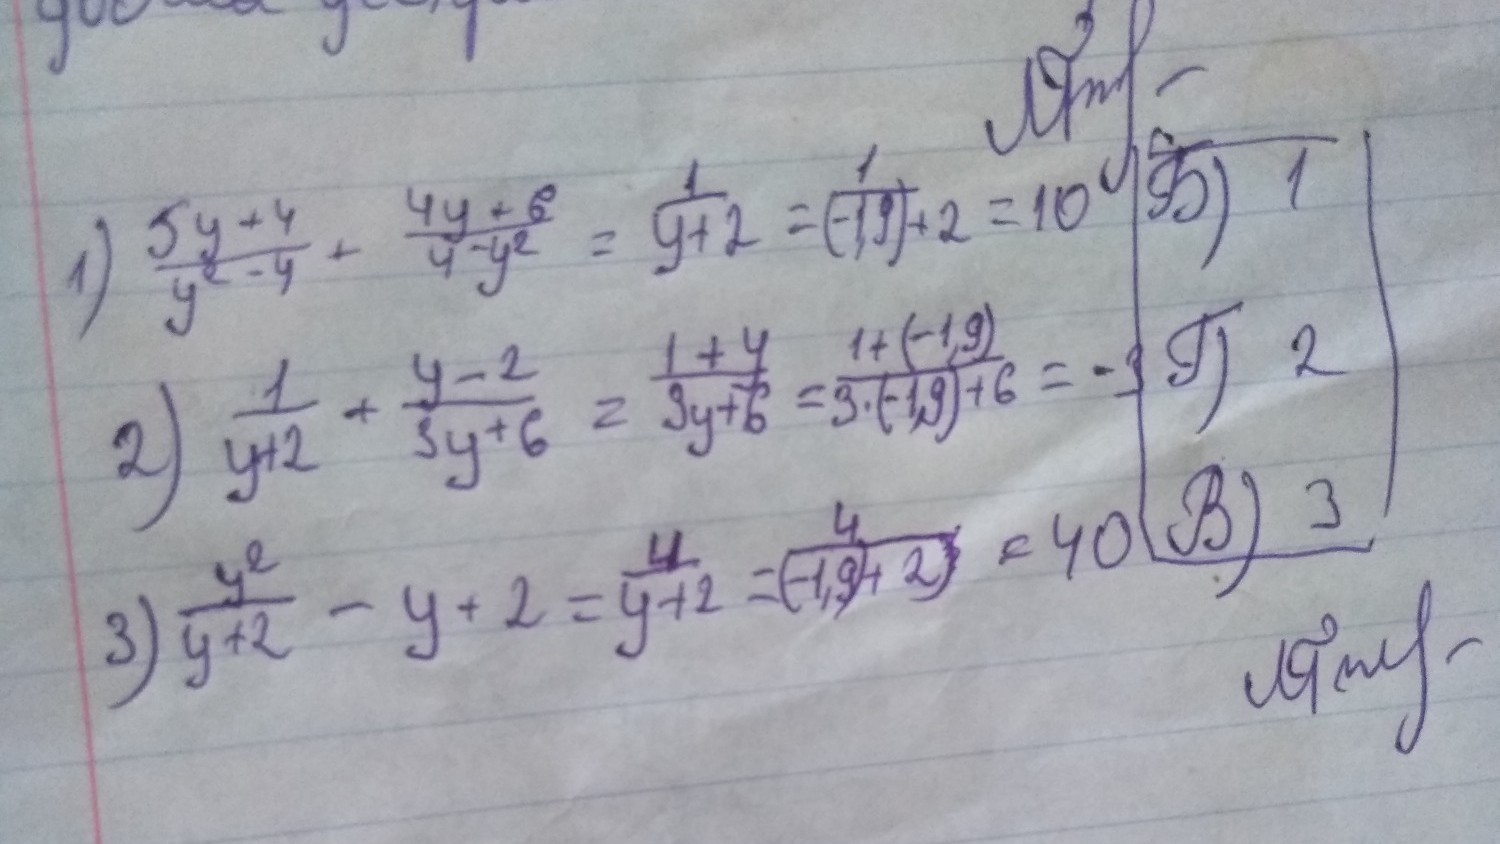 1) (5y+4)/(y²-4) + (4y+6)/(4-y²) = 1/(y+2) = 1/((-1,9)+2) = 10 Б) 1
2) 1/(y+2) + (y-2)/(3y+6) = (1+y)/(3y+6) = (1+(-1,9))/(3·(-1,9)+6) = -3 Г) 2
3) y²/(y+2) - y + 2 = 4/(y+2) = 4/((-1,9)+2) = 40 В) 3